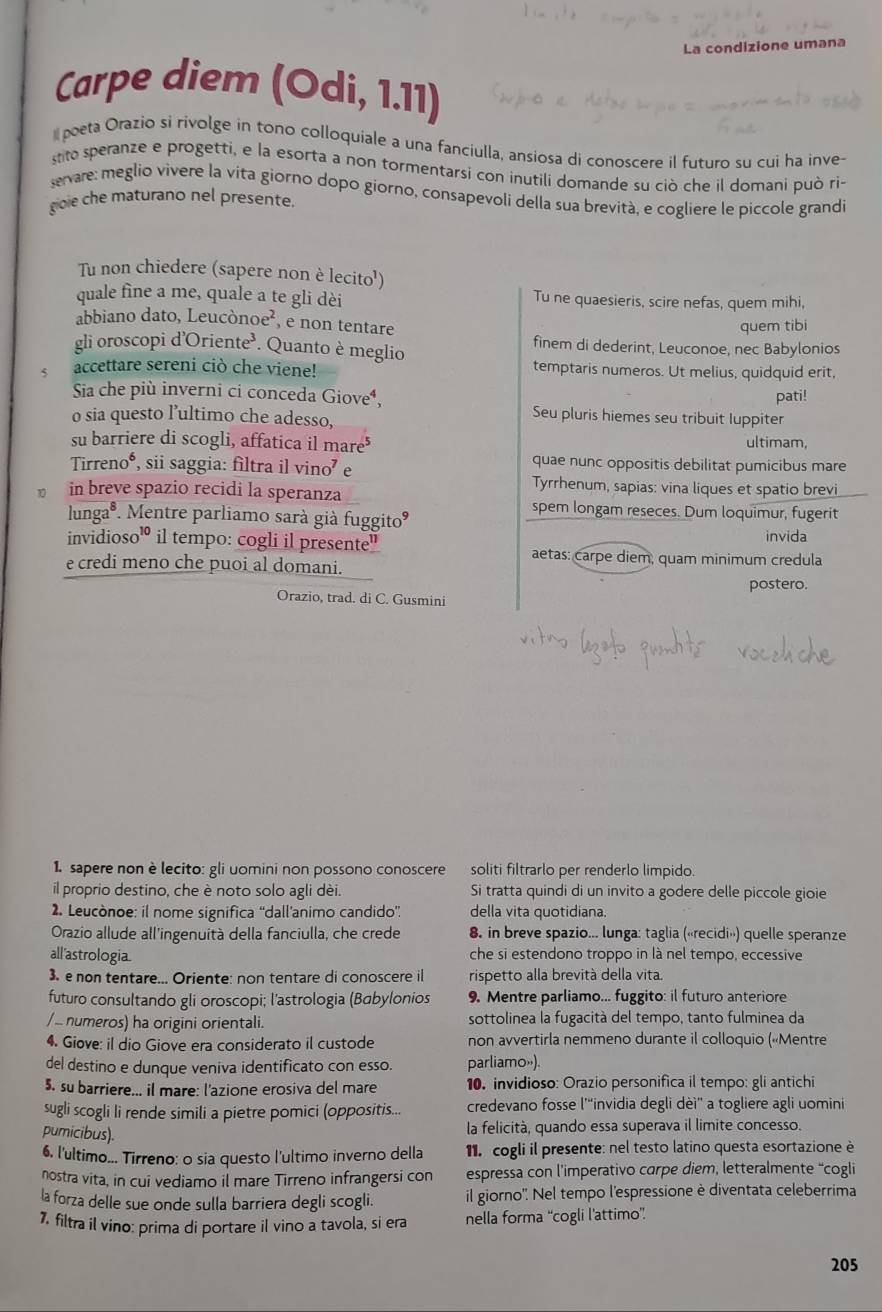 La condizione umana
Carpe diem (Odi, 1.11)
Il poeta Orazio si rivolge in tono colloquiale a una fanciulla, ansiosa di conoscere il futuro su cui ha inve-
stito speranze e progetti, e la esorta a non tormentarsi con inutili domande su ciò che il domani può ri-
servare: meglio vivere la vita giorno dopo giorno, consapevoli della sua brevità, e cogliere le piccole grandi
gioie che maturano nel presente.
Tu non chiedere (sapere non è lecito¹)
quale fine a me, quale a te gli dèi
abbiano dato, Leucònoe², e non tentare
gli oroscopi d'Oriente³. Quanto è meglio
5 accettare sereni ciò che viene!
Sia che più inverni ci conceda Giove⁴,
o sia questo l'ultimo che adesso,
su barriere di scogli, affatica il mare⁵
Tirreno⁶, sii saggia: filtra il vino⁷ e
10 in breve spazio recidi la speranza
lunga⁸. Mentre parliamo sarà già fuggito⁹
invidioso¹⁰ il tempo: cogli il presente¹¹
e credi meno che puoi al domani.
Orazio, trad. di C. Gusmini
Tu ne quaesieris, scire nefas, quem mihi,
quem tibi
finem di dederint, Leuconoe, nec Babylonios
temptaris numeros. Ut melius, quidquid erit,
pati!
Seu pluris hiemes seu tribuit Iuppiter
ultimam,
quae nunc oppositis debilitat pumicibus mare
Tyrrhenum, sapias: vina liques et spatio brevi
spem longam reseces. Dum loquimur, fugerit
invida
aetas: carpe diem, quam minimum credula
postero.
1. sapere non è lecito: gli uomini non possono conoscere
il proprio destino, che è noto solo agli dèi.
2. Leucònoe: il nome significa “dall'animo candido”.
Orazio allude all'ingenuità della fanciulla, che crede
all'astrologia.
3. e non tentare... Oriente: non tentare di conoscere il
futuro consultando gli oroscopi; l'astrologia (Babylonios
/... numeros) ha origini orientali.
4. Giove: il dio Giove era considerato il custode
del destino e dunque veniva identificato con esso.
5. su barriere... il mare: l'azione erosiva del mare
sugli scogli li rende simili a pietre pomici (oppositis...
pumicibus).
6. l'ultimo... Tirreno: o sia questo l'ultimo inverno della
nostra vita, in cui vediamo il mare Tirreno infrangersi con
la forza delle sue onde sulla barriera degli scogli.
7. filtra il vino: prima di portare il vino a tavola, si era
soliti filtrarlo per renderlo limpido.
Si tratta quindi di un invito a godere delle piccole gioie
della vita quotidiana.
8. in breve spazio... lunga: taglia («recidi») quelle speranze
che si estendono troppo in là nel tempo, eccessive
rispetto alla brevità della vita.
9. Mentre parliamo... fuggito: il futuro anteriore
sottolinea la fugacità del tempo, tanto fulminea da
non avvertirla nemmeno durante il colloquio («Mentre
parliamo»).
10. invidioso: Orazio personifica il tempo: gli antichi
credevano fosse l'“invidia degli dèi” a togliere agli uomini
la felicità, quando essa superava il limite concesso.
11. cogli il presente: nel testo latino questa esortazione è
espressa con l'imperativo carpe diem, letteralmente “cogli
il giorno”. Nel tempo l'espressione è diventata celeberrima
nella forma “cogli l'attimo”.
205